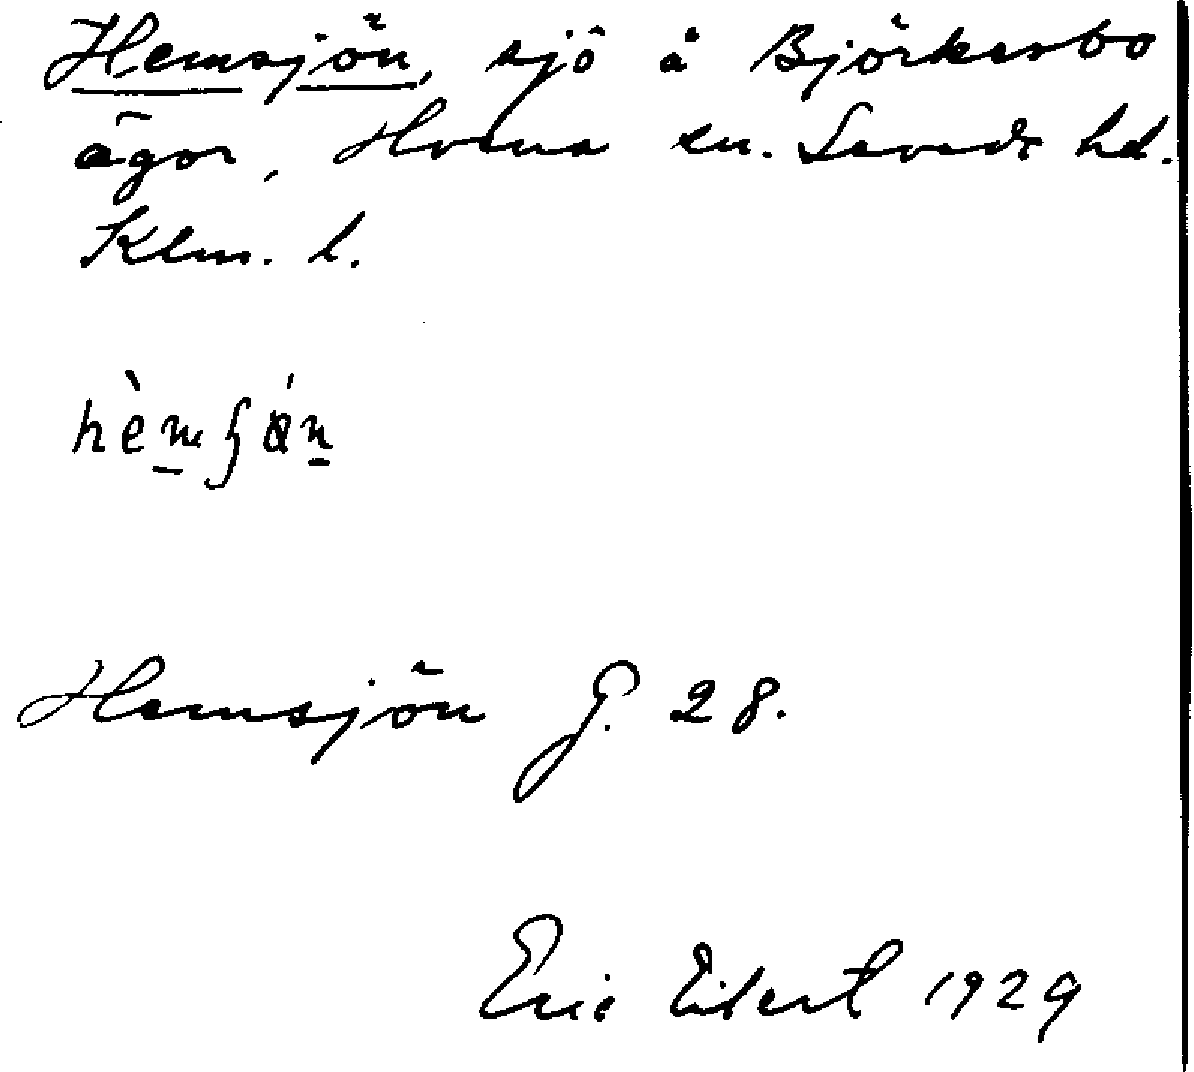 Hemsjön, sjö å Björkesbo
ägor, Hvena sn. Sevede hd.
Klm. l.
Hemsjön G. 28.
Eric 1929